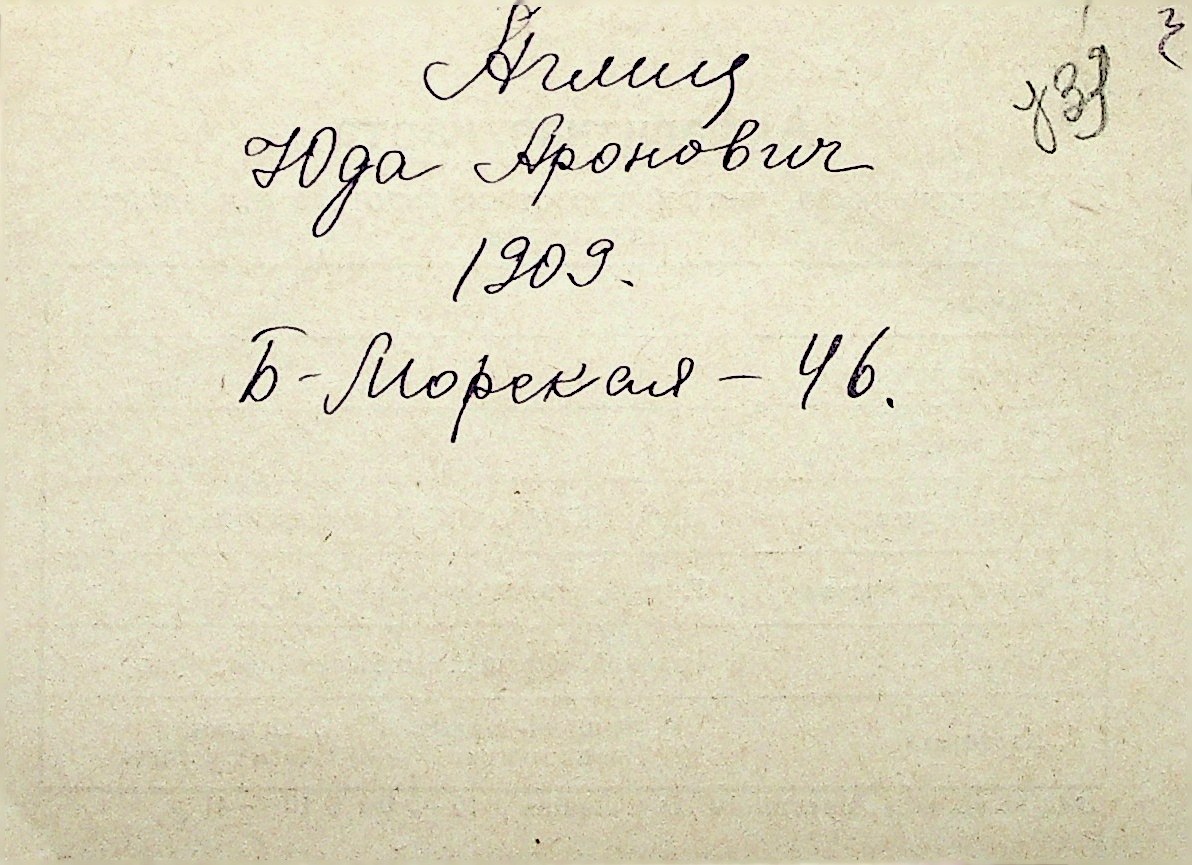 Аглиц
Юда Аронович
1909.
Б-Морская - 46.